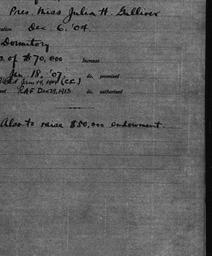 Pres. Miss Julia H. Gulliver
Dec. 6. '04
Dormitory
of $70,000 Increase
Jan. 18, '07 do. promised
R.A.F. Dec 29, 1913 do. authorized
Also to raise $50,000 endowment.